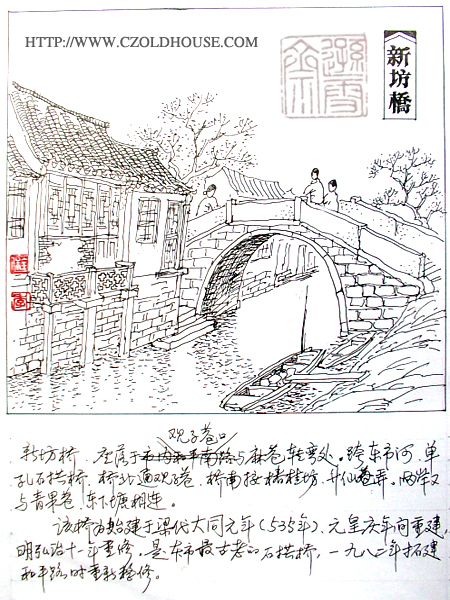 HTTP://WWW.CZOLDHOUSE.COM
新坊橋
观子巷口
新坊桥,座落于市内和平南路与麻巷转弯处。跨东市河,单
孔石拱桥,桥北通观子巷,桥南接椿桂坊、升仙巷弄。两岸又
与青果巷、东下塘相连。
该桥始建于梁代大同元年(535年),元皇庆年间重建,
明弘治十一年重修,是本市最古老的石拱桥,一九八二年拓建
和平路时重新整修。